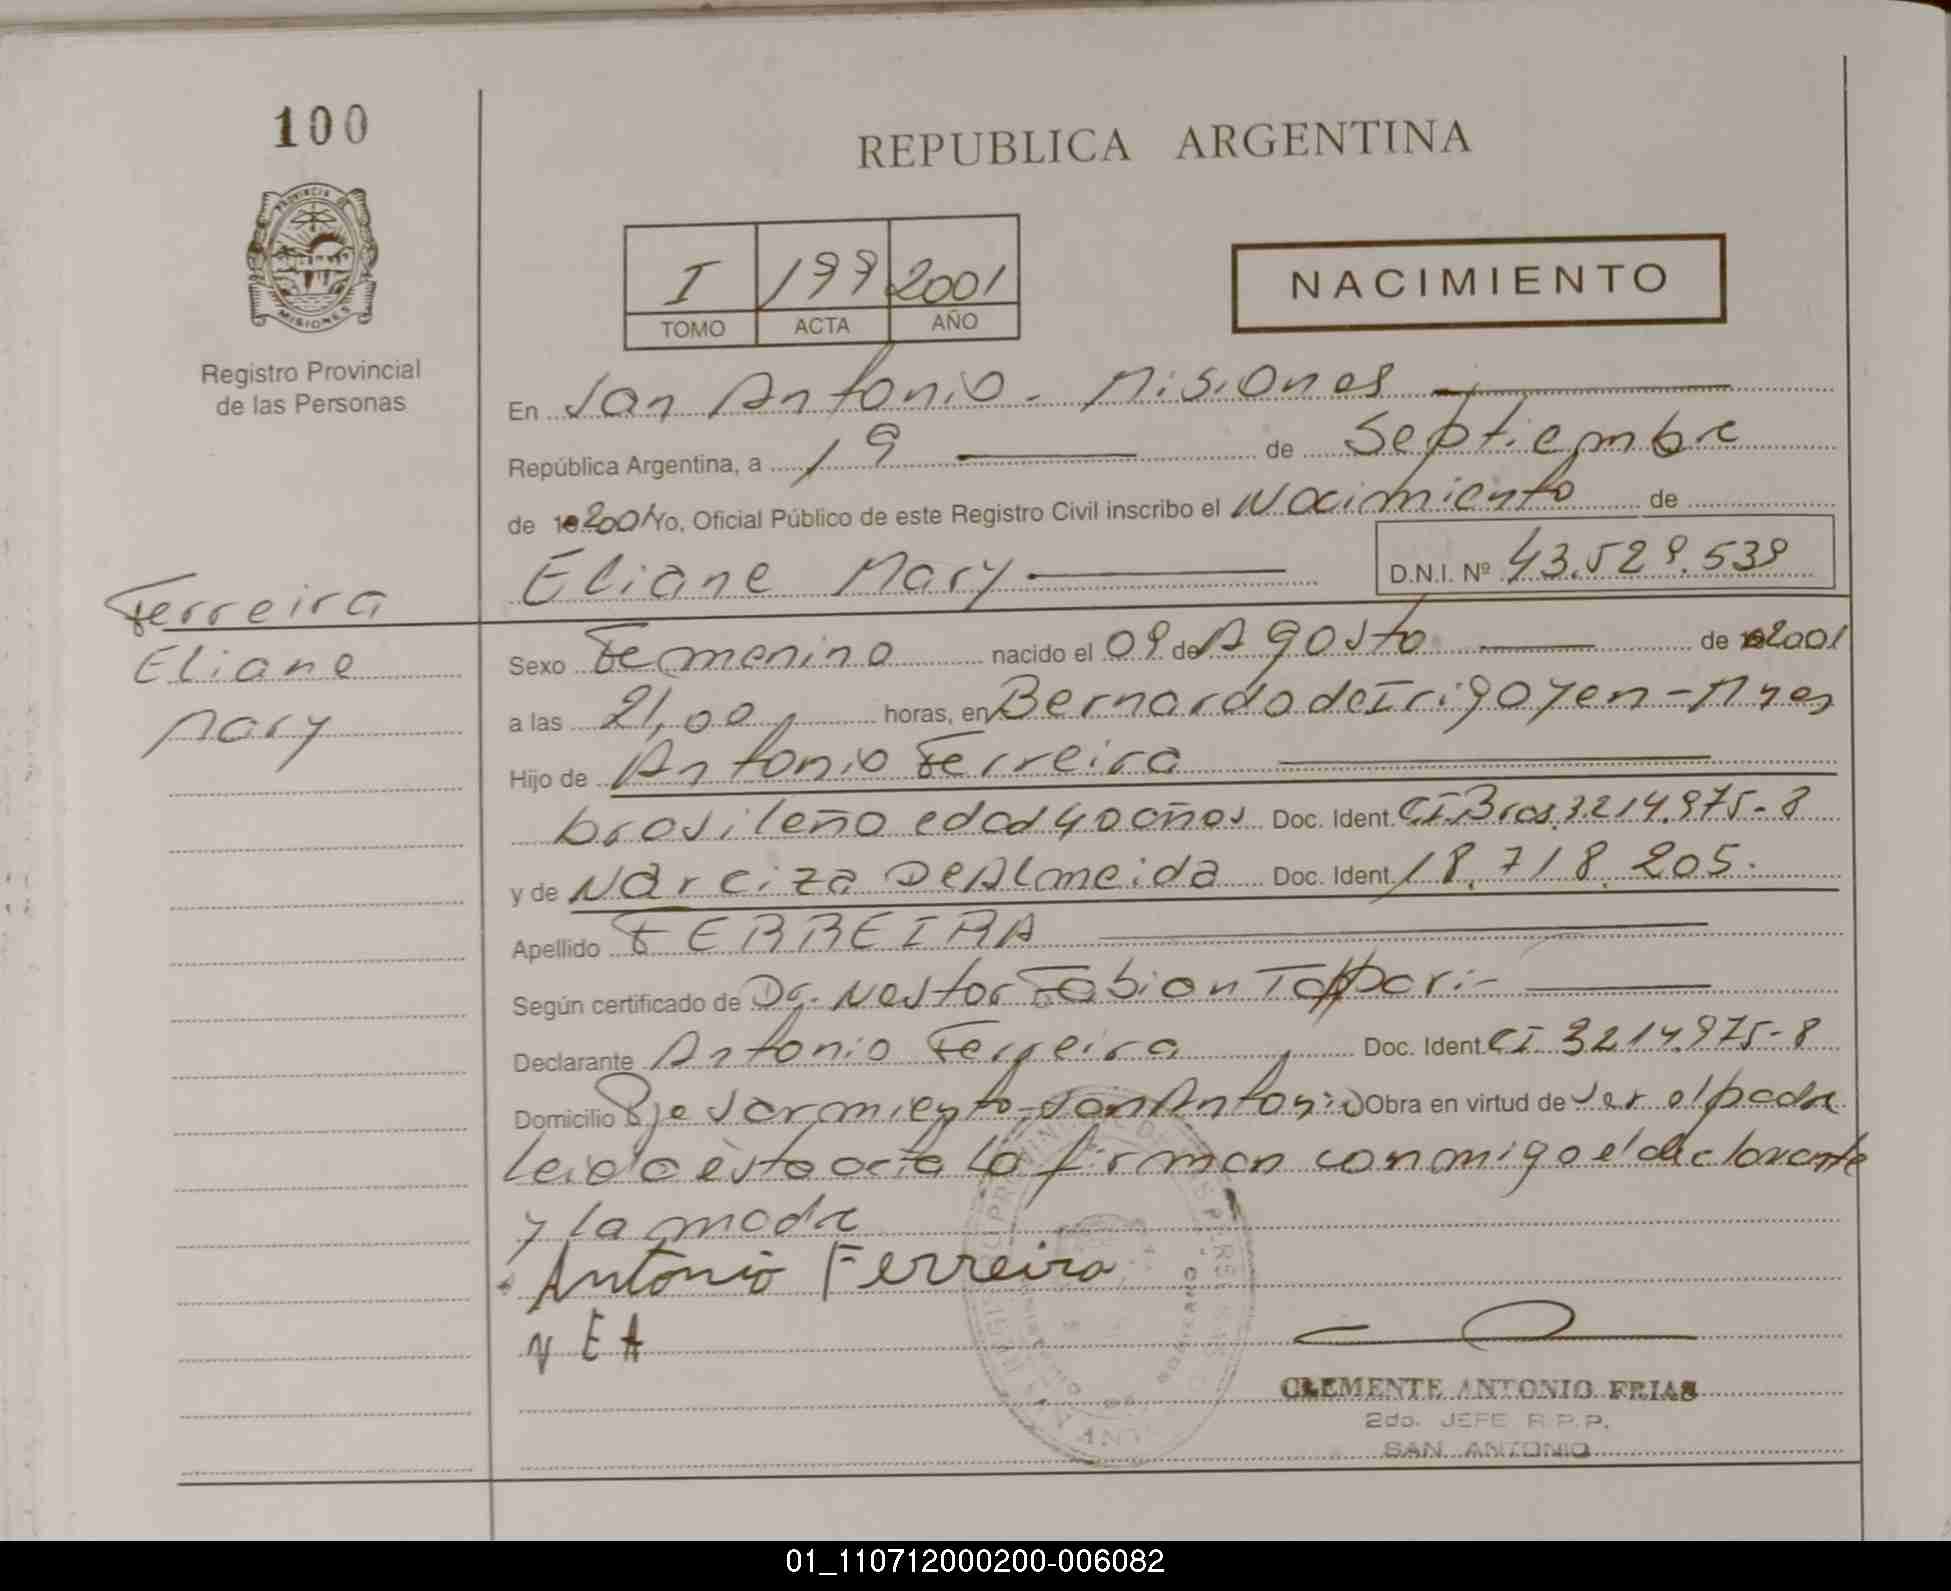 100
REPUBLICA ARGENTINA
PROVINCIA DE
MISIONES
I 199 2001
TOMO ACTA AÑO
NACIMIENTO
Registro Provincial
de las Personas
En San Antonio - Misiones
República Argentina, a 19 de Septiembre
de 2001 Yo, Oficial Público de este Registro Civil inscribo el Nacimiento de
Eliane Mary D.N.I. Nº 43.529.539
Ferreira
Eliane
Mary
Sexo Femenino nacido el 09 de Agosto de 2001
a las 21,00 horas, en Bernardo de Irigoyen - Mnes
Hijo de Antonio Ferreira
brasileño edad 40 años Doc. Ident. CI Bras. 3.214.975-8
y de Narciza De Almeida Doc. Ident. 18.718.205.
Apellido FERREIRA
Según certificado de Dr. Nestor Fabian Tappari
Declarante Antonio Ferreira Doc. Ident. CI 3214.975-8
Domicilio Pje Sarmiento - San Antonio Obra en virtud de ser el padre
Leida ésta acta la firman conmigo el declarante
y la madre
Antonio Ferreira
N E A
CLEMENTE ANTONIO FRIAS
2do. JEFE R.P.P.
SAN ANTONIO
01_110712000200-006082